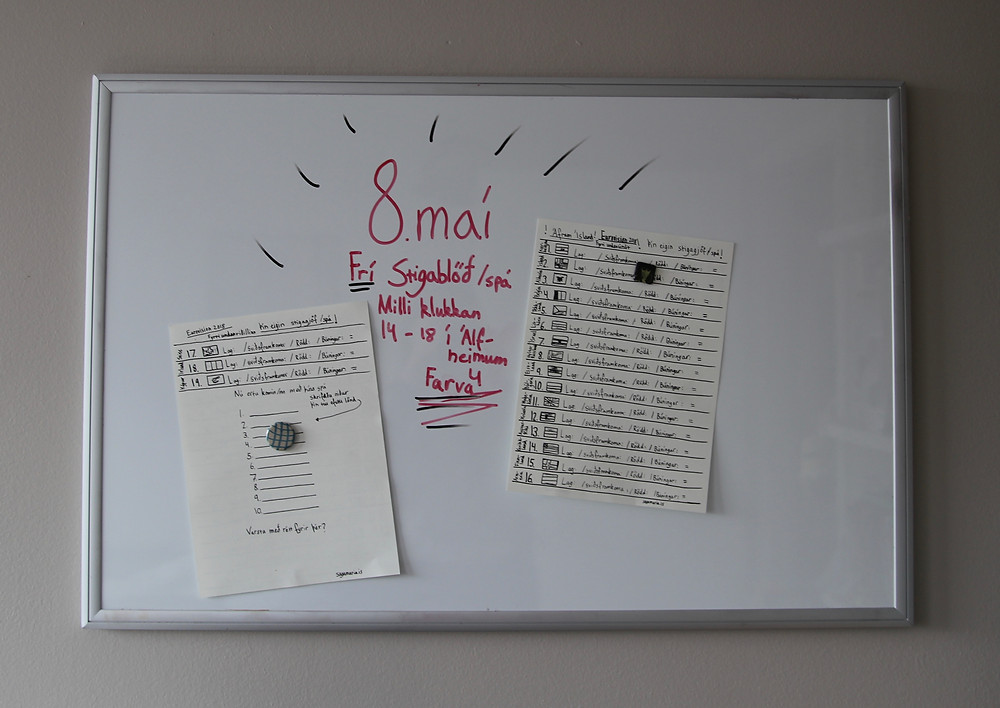 8. maí
Frí Stigablöð/spá
Milli klukkan
14 - 18 í Álf-
heimum
4
Farva
Eurovision
Þín eigin stigagjöf/spá!
Fyrri undanriðillinn
17. Lag: /sviðsframkoma: /Rödd: /Búningar: =
18. Lag: /sviðsframkoma: /Rödd: /Búningar: =
19. Lag: /sviðsframkoma: /Rödd: /Búningar: =
Nú ertu komin/nn með þína spá
1.
2.
3.
4.
5.
6.
7.
8.
9.
10.
Varstu með rétt fyrir þér?
! Áfram Ísland! Eurovision Þín eigin stigagjöf/spá!
Lag: /sviðsframkoma: /Rödd: /Búningar: =
2. Lag: /sviðsframkoma: /Búningar: =
3. Lag: /sviðsframkoma: /Rödd: /Búningar: =
4. Lag: /sviðsframkoma: /Rödd: /Búningar: =
5. Lag: /sviðsframkoma: /Rödd: /Búningar: =
6. Lag: /sviðsframkoma: /Rödd: /Búningar: =
7. Lag: /sviðsframkoma: /Rödd: /Búningar: =
8. Lag: /sviðsframkoma: /Rödd: /Búningar: =
9. Lag: /sviðsframkoma: /Rödd: /Búningar: =
10. Lag: /sviðsframkoma: /Rödd: /Búningar: =
11. Lag: /sviðsframkoma: /Rödd: /Búningar: =
12. Lag: /sviðsframkoma: /Rödd: /Búningar: =
13. Lag: /sviðsframkoma: /Rödd: /Búningar: =
14. Lag: /sviðsframkoma: /Rödd: /Búningar: =
15. Lag: /sviðsframkoma: /Rödd: /Búningar: =
16. Lag: /sviðsframkoma: /Rödd: /Búningar: =